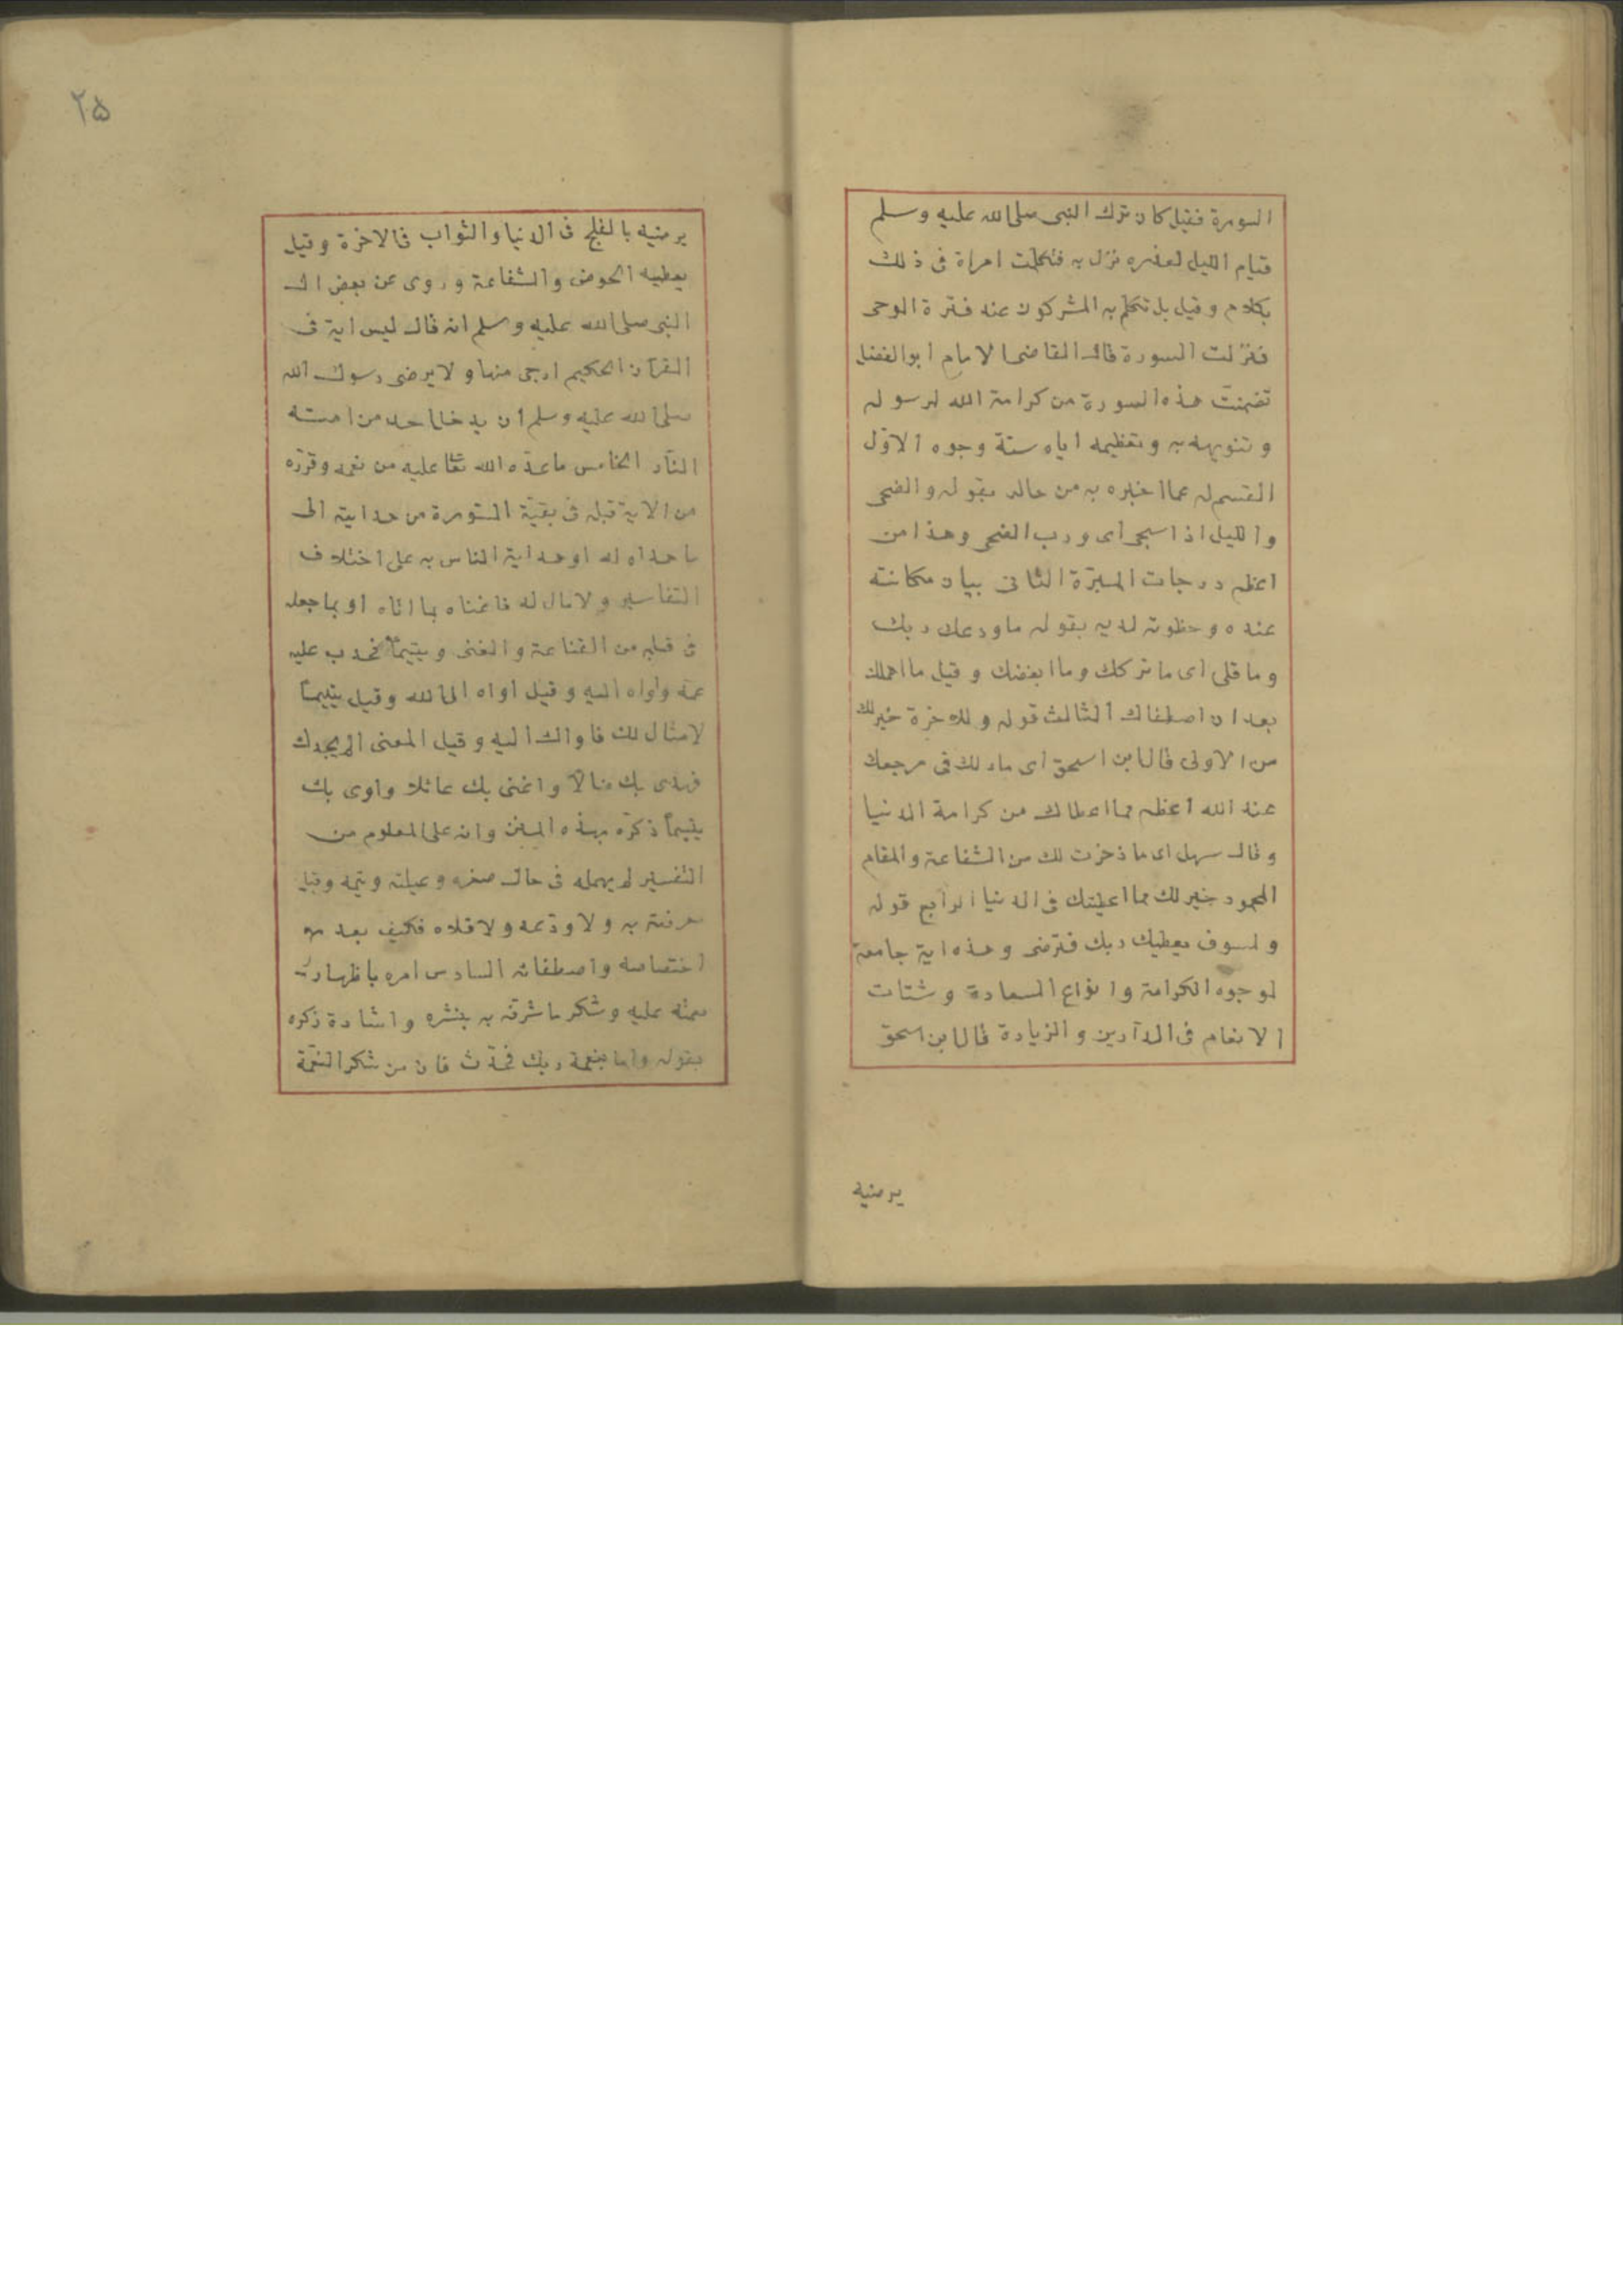 السورة فقيل كان ترك النبى صلى الله عليه وسلم
قيام الليل لعذره نزل به فتكلمت امراة فى ذلك
بكلام وقيل بل تكلم به المشركون عند فترة الوحى
فنزلت السورة قال القاضى الامام ابو الفضل
تضمنت هذه السورة من كرامة الله لرسوله
وتنويهه به وتعظيمه اياه ستة وجوه الاوّل
القسم له عما اخبره به من حاله بقوله والضحى
والليل اذا سجى اى ورب الضحى وهذا من
اعظم درجات المبرّة الثانى بيان مكانته
عنده وحظوته لديه بقوله ما ودعك ربك
وما قلى اى ما تركك وما ابغضك وقيل ما اهملك
بعد ان اصطفاك الثالث قوله وللاخرة خير لك
من الاولى قال ابن اسحق اى مالك فى مرجعك
عند الله اعظم مما اعطاك من كرامة الدنيا
وقال سهل اى ما ذخرت لك من الشفاعة والمقام
المحمود خير لك مما اعطيتك فى الدنيا الرابع قوله
ولسوف يعطيك ربك فترضى وهذه اية جامعة
لوجوه الكرامة وانواع السعادة وشتات
الانعام فى الدّارين والزيادة قال ابن اسحق
يرضيه
٢٥
يرضيه بالفلج فى الدنيا والثواب فى الاخرة وقيل
يعطيه الحوض والشفاعة وروى عن بعض ال
النبى صلى الله عليه وسلم انه قال ليس اية فى
القرآن الحكيم ارجى منها ولا يرضى رسول الله
صلى الله عليه وسلم ان يدخل احد من امته
النّار الخامس ما عدّه الله تعا عليه من نعمه وقرّره
من الاية قبله فى بقيّة السّورة من هدايته الى
ما هداه له او هداية الناس به على اختلاف
التفاسير ولا مال له فاغناه بما اتاه او بما جعله
فى قلبه من القناعة والغنى ويتيمًا فحدب عليه
عمّه واواه اليه وقيل اواه الى الله وقيل يتيمًا
لا مثال لك فاواك اليه وقيل المعنى الم يجدك
فهدى بك ضالًّا واغنى بك عائلا واوى بك
يتيمًا ذكّره بهذه المنن وانه على المعلوم من
التفسير لم يهمله فى حال صغره وعيلته ويتمه وقبل
معرفته به ولا ودّعه ولا قلاه فكيف بعد
اختصاصه واصطفائه السادس امره باظهار
نعمته عليه وشكر ما شرّفه به بنشره واشادة ذكره
بقوله واما بنعمة ربك فحدّث فان من شكر النعمة